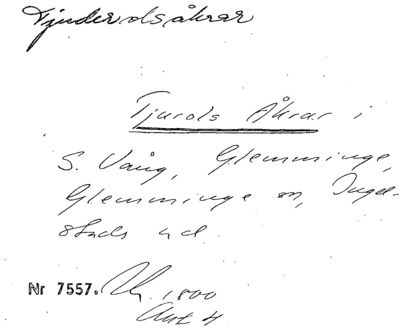 Tjuderolsåkrar
Tjurols Åkrar i
S. Vång, Glemminge,
Glemminge sn, Ingel-
stads hd.
Nr 7557. 1800
Akt 4